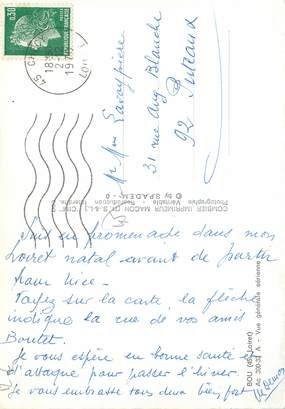 Suis en promenade dans mon
Loiret natal avant de partir
pour Nice.
Voyez sur la carte la flèche
indique la rue de vos amis
Boutet.
Je vous espère en bonne santé et
d'attaque pour passer l'hiver.
Je vous embrasse tous deux bien fort
Mr Mme
31 rue Aug. Blanche
92 Puteaux
COMBIER IMPRIMEUR MACON (S.-&-L.) "CIM"
Photographies Véritable - Reproduction interdite
© by S.P.A.D.E.M.
BOU (45-Loiret)
Ac 300-31 A - Vue générale aérienne
0,30
REPUBLIQUE FRANÇAISE
POSTES
45
18